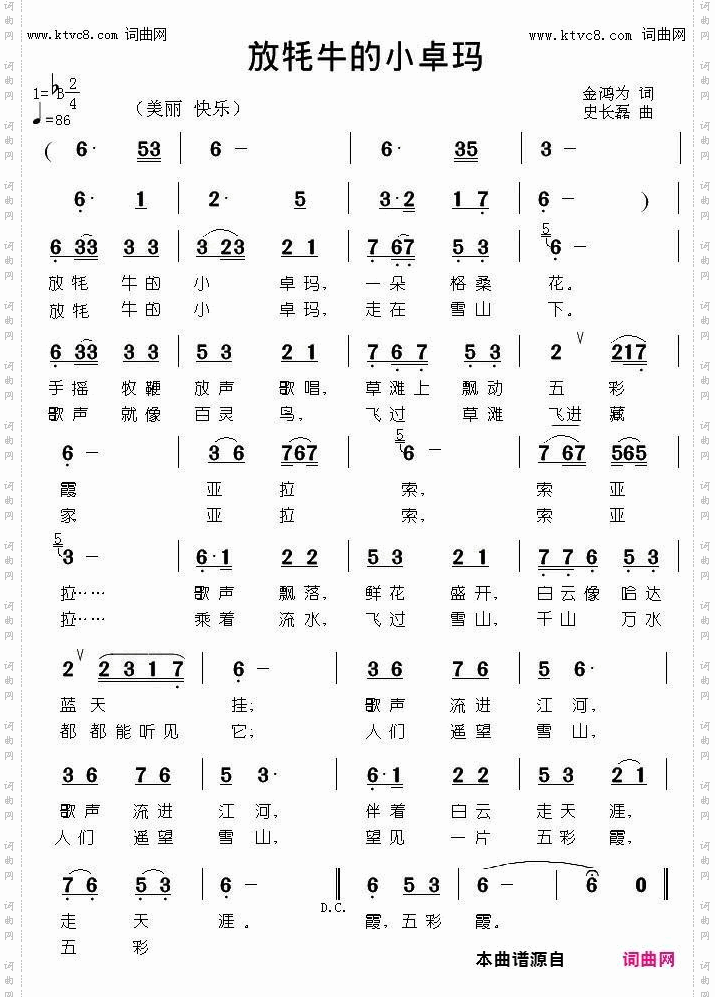 www.ktvc8.com 词曲网
www.ktvc8.com 词曲网
放牦牛的小卓玛
1=♭B 2/4
♩=86
（美丽 快乐）
金鸿为 词
史长磊 曲
( 6· 53 | 6 − | 6· 35 | 3 − |
6· 1 | 2· 5 | 3·2 1 7 | 6 − )
6 33 3 3 | 3 23 2 1 | 7 67 5 3 | 5 6 − |
放牦 牛的 小 卓玛， 一朵 格桑 花。
放牦 牛的 小 卓玛， 走在 雪山 下。
6 33 3 3 | 5 3 2 1 | 7 6 7 5 3 | 2 ∨ 217 |
手摇 牧鞭 放声 歌唱， 草滩上 飘动 五 彩
歌声 就像 百灵 鸟， 飞过 草滩 飞进 藏
6 − | 3 6 767 | 5 6 − | 7 67 565 |
霞 亚 拉 索， 索 亚
家 亚 拉 索， 索 亚
5 3 − | 6·1 2 2 | 5 3 2 1 | 7 7 6 5 3 |
拉…… 歌声 飘落， 鲜花 盛开， 白云像 哈达
拉…… 乘着 流水， 飞过 雪山， 千山 万水
2 ∨ 2 3 1 7 | 6 − | 3 6 7 6 | 5 6· |
蓝天 挂； 歌声 流进 江河，
都 都能听见 它； 人们 遥望 雪山，
3 6 7 6 | 5 3· | 6·1 2 2 | 5 3 2 1 |
歌声 流进 江河， 伴着 白云 走天 涯，
人们 遥望 雪山， 望见 一片 五彩 霞，
7 6 5 3 | 6 − ‖ 6 5 3 | 6 − | 6 0 ‖
D.C.
走 天 涯。 霞，五彩 霞。
五 彩
本曲谱源自 词曲网